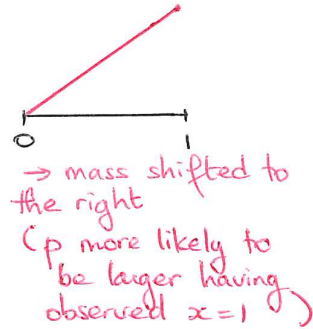 0 1
→ mass shifted to
the right
(p more likely to
be larger having
observed x=1 )